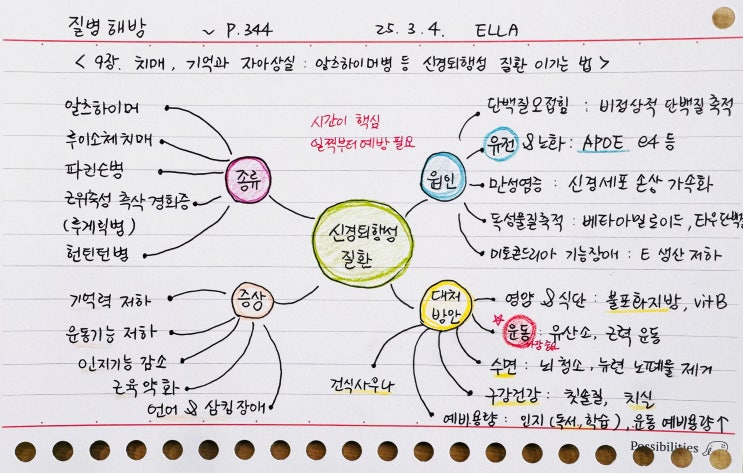 질병 해방 ~ P.344 25. 3. 4. ELLA
< 9장. 치매, 기억과 자아상실 : 알츠하이머병 등 신경퇴행성 질환 이기는 법 >
시간이 핵심
일찍부터 예방 필요
신경퇴행성
질환
종류
알츠하이머
루이소체 치매
파킨슨병
근위축성 측삭 경화증
(루게릭병)
헌틴턴병
원인
단백질오접힘 : 비정상적 단백질 축적
유전 & 노화 : APOE e4 등
만성염증 : 신경세포 손상 가속화
독성물질축적 : 베타아밀로이드, 타우단백질
미토콘드리아 기능장애 : E 생산 저하
증상
기억력 저하
운동기능 저하
인지기능 감소
근육약화
언어 & 삼킴장애
대처
방안
영양 & 식단 : 불포화지방, vitB
☆ 운동 : 유산소, 근력 운동
수면 : 뇌 청소, 뉴런 노폐물 제거
구강건강 : 칫솔질, 치실
예비용량 : 인지 (독서, 학습), 운동 예비용량 ↑
건식사우나
Possibilities